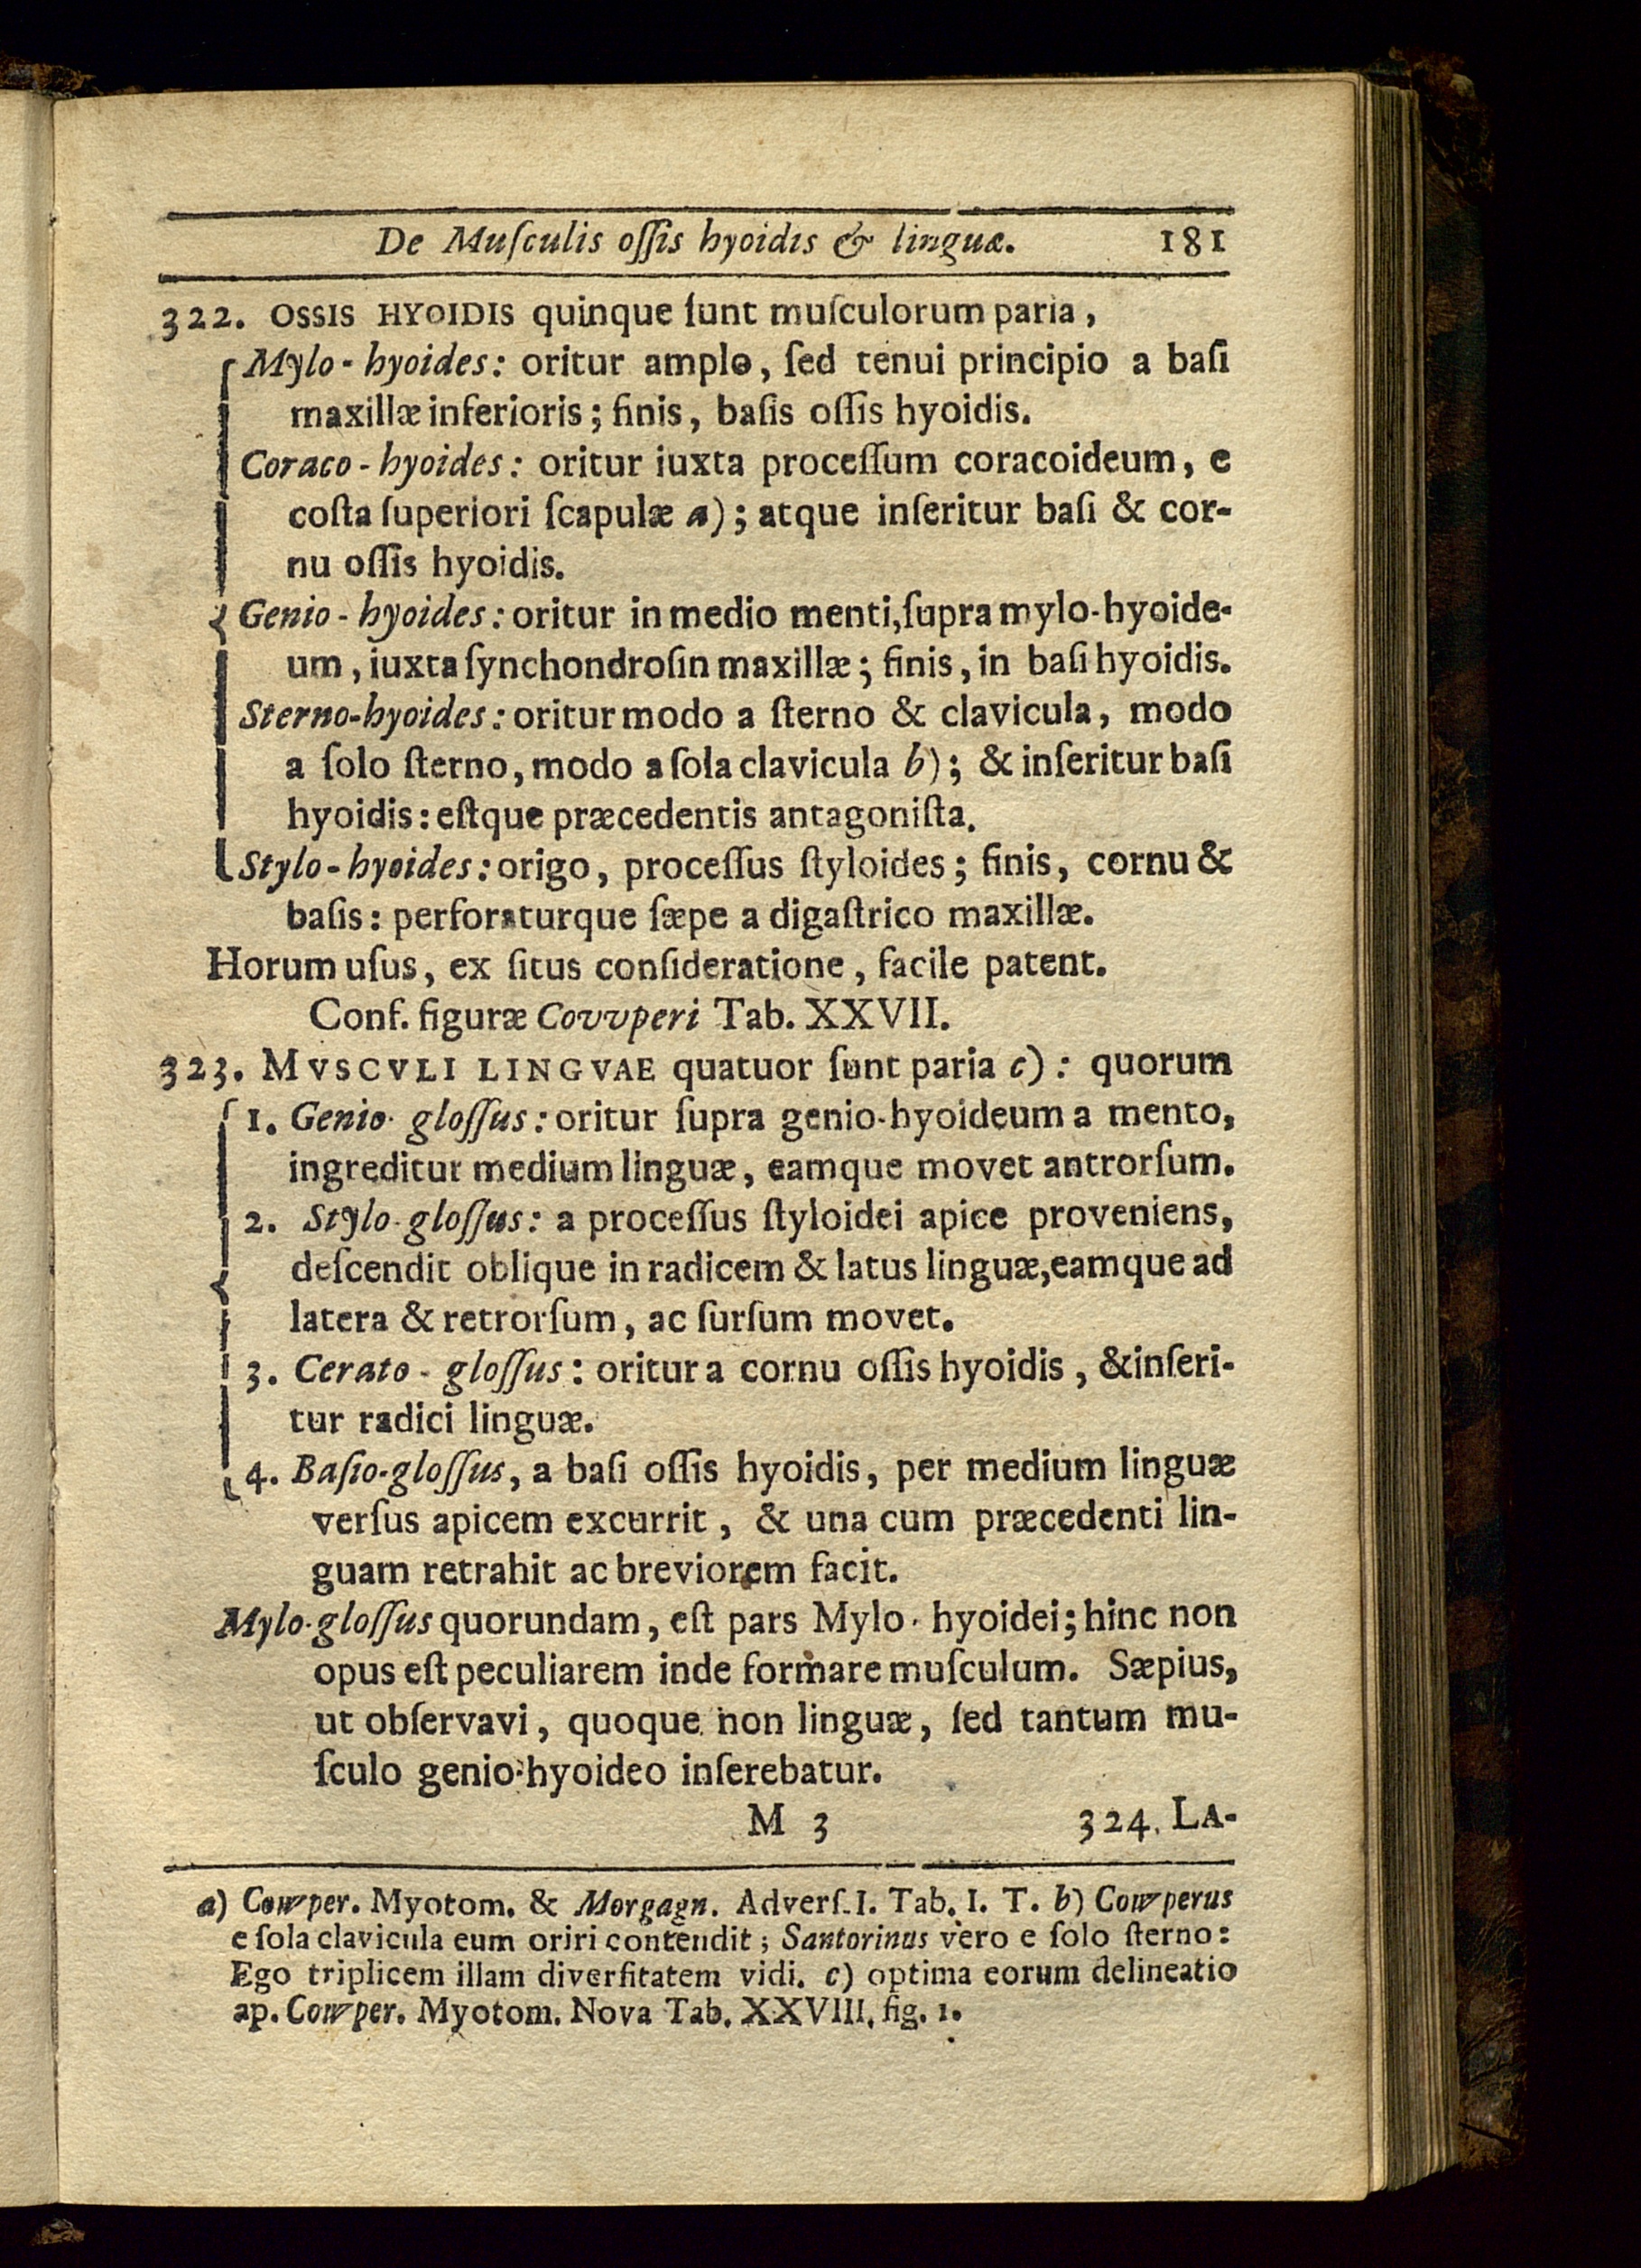 De Muſculis oſſis hyoidis & linguæ. 181
322. OSSIS HYOIDIS quinque ſunt muſculorum paria,
Mylo-hyoides: oritur amplo, ſed tenui principio a baſi
maxillæ inferioris; finis, baſis oſſis hyoidis.
Coraco-hyoides: oritur iuxta proceſſum coracoideum, e
coſta ſuperiori ſcapulæ a); atque inſeritur baſi & cor-
nu oſſis hyoidis.
Genio-hyoides: oritur in medio menti, ſupra mylo-hyoide-
um, iuxta ſynchondroſin maxillæ; finis, in baſi hyoidis.
Sterno-hyoides: oritur modo a ſterno & clavicula, modo
a ſolo ſterno, modo a ſola clavicula b); & inſeritur baſi
hyoidis: eſtque præcedentis antagoniſta.
Stylo-hyoides: origo, proceſſus ſtyloides; finis, cornu &
baſis: perforaturque ſæpe a digaſtrico maxillæ.
Horum uſus, ex ſitus conſideratione, facile patent.
Conf. figuræ Covvperi Tab. XXVII.
323. MVSCVLI LINGVAE quatuor ſunt paria c): quorum
1. Genio-gloſſus: oritur ſupra genio-hyoideum a mento,
ingreditur medium linguæ, eamque movet antrorſum.
2. Stylo-gloſſus: a proceſſus ſtyloidei apice proveniens,
deſcendit oblique in radicem & latus linguæ, eamque ad
latera & retrorſum, ac ſurſum movet.
3. Cerato-gloſſus: oritur a cornu oſſis hyoidis, & inſeri-
tur radici linguæ.
4. Baſio-gloſſus, a baſi oſſis hyoidis, per medium linguæ
verſus apicem excurrit, & una cum præcedenti lin-
guam retrahit ac breviorem facit.
Mylo-gloſſus quorundam, eſt pars Mylo-hyoidei; hinc non
opus eſt peculiarem inde formare muſculum. Sæpius,
ut obſervavi, quoque non linguæ, ſed tantum mu-
ſculo genio-hyoideo inſerebatur.
M 3 324. LA-
a) Cowper. Myotom. & Morgagn. Adverſ. I. Tab. I. T. b) Cowperus
e ſola clavicula eum oriri contendit; Santorinus vero e ſolo ſterno:
Ego triplicem illam diverſitatem vidi. c) optima eorum delineatio
ap. Cowper. Myotom. Nova Tab. XXVIII. fig. 1.